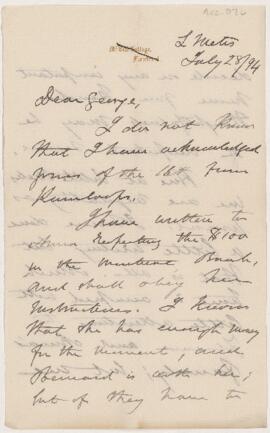 Acc. 976
McGill College,
Montreal
L Metis
July 28/94
Dear George,
I do not know
that I have acknowledged
yours of the 16th from
Kamloops.
I have written to
respecting the $100
in the Montreal Bank,
and shall obey her
instructions. I know
that she has enough money
for the moment, and
Bernard is with her;
but if they have to